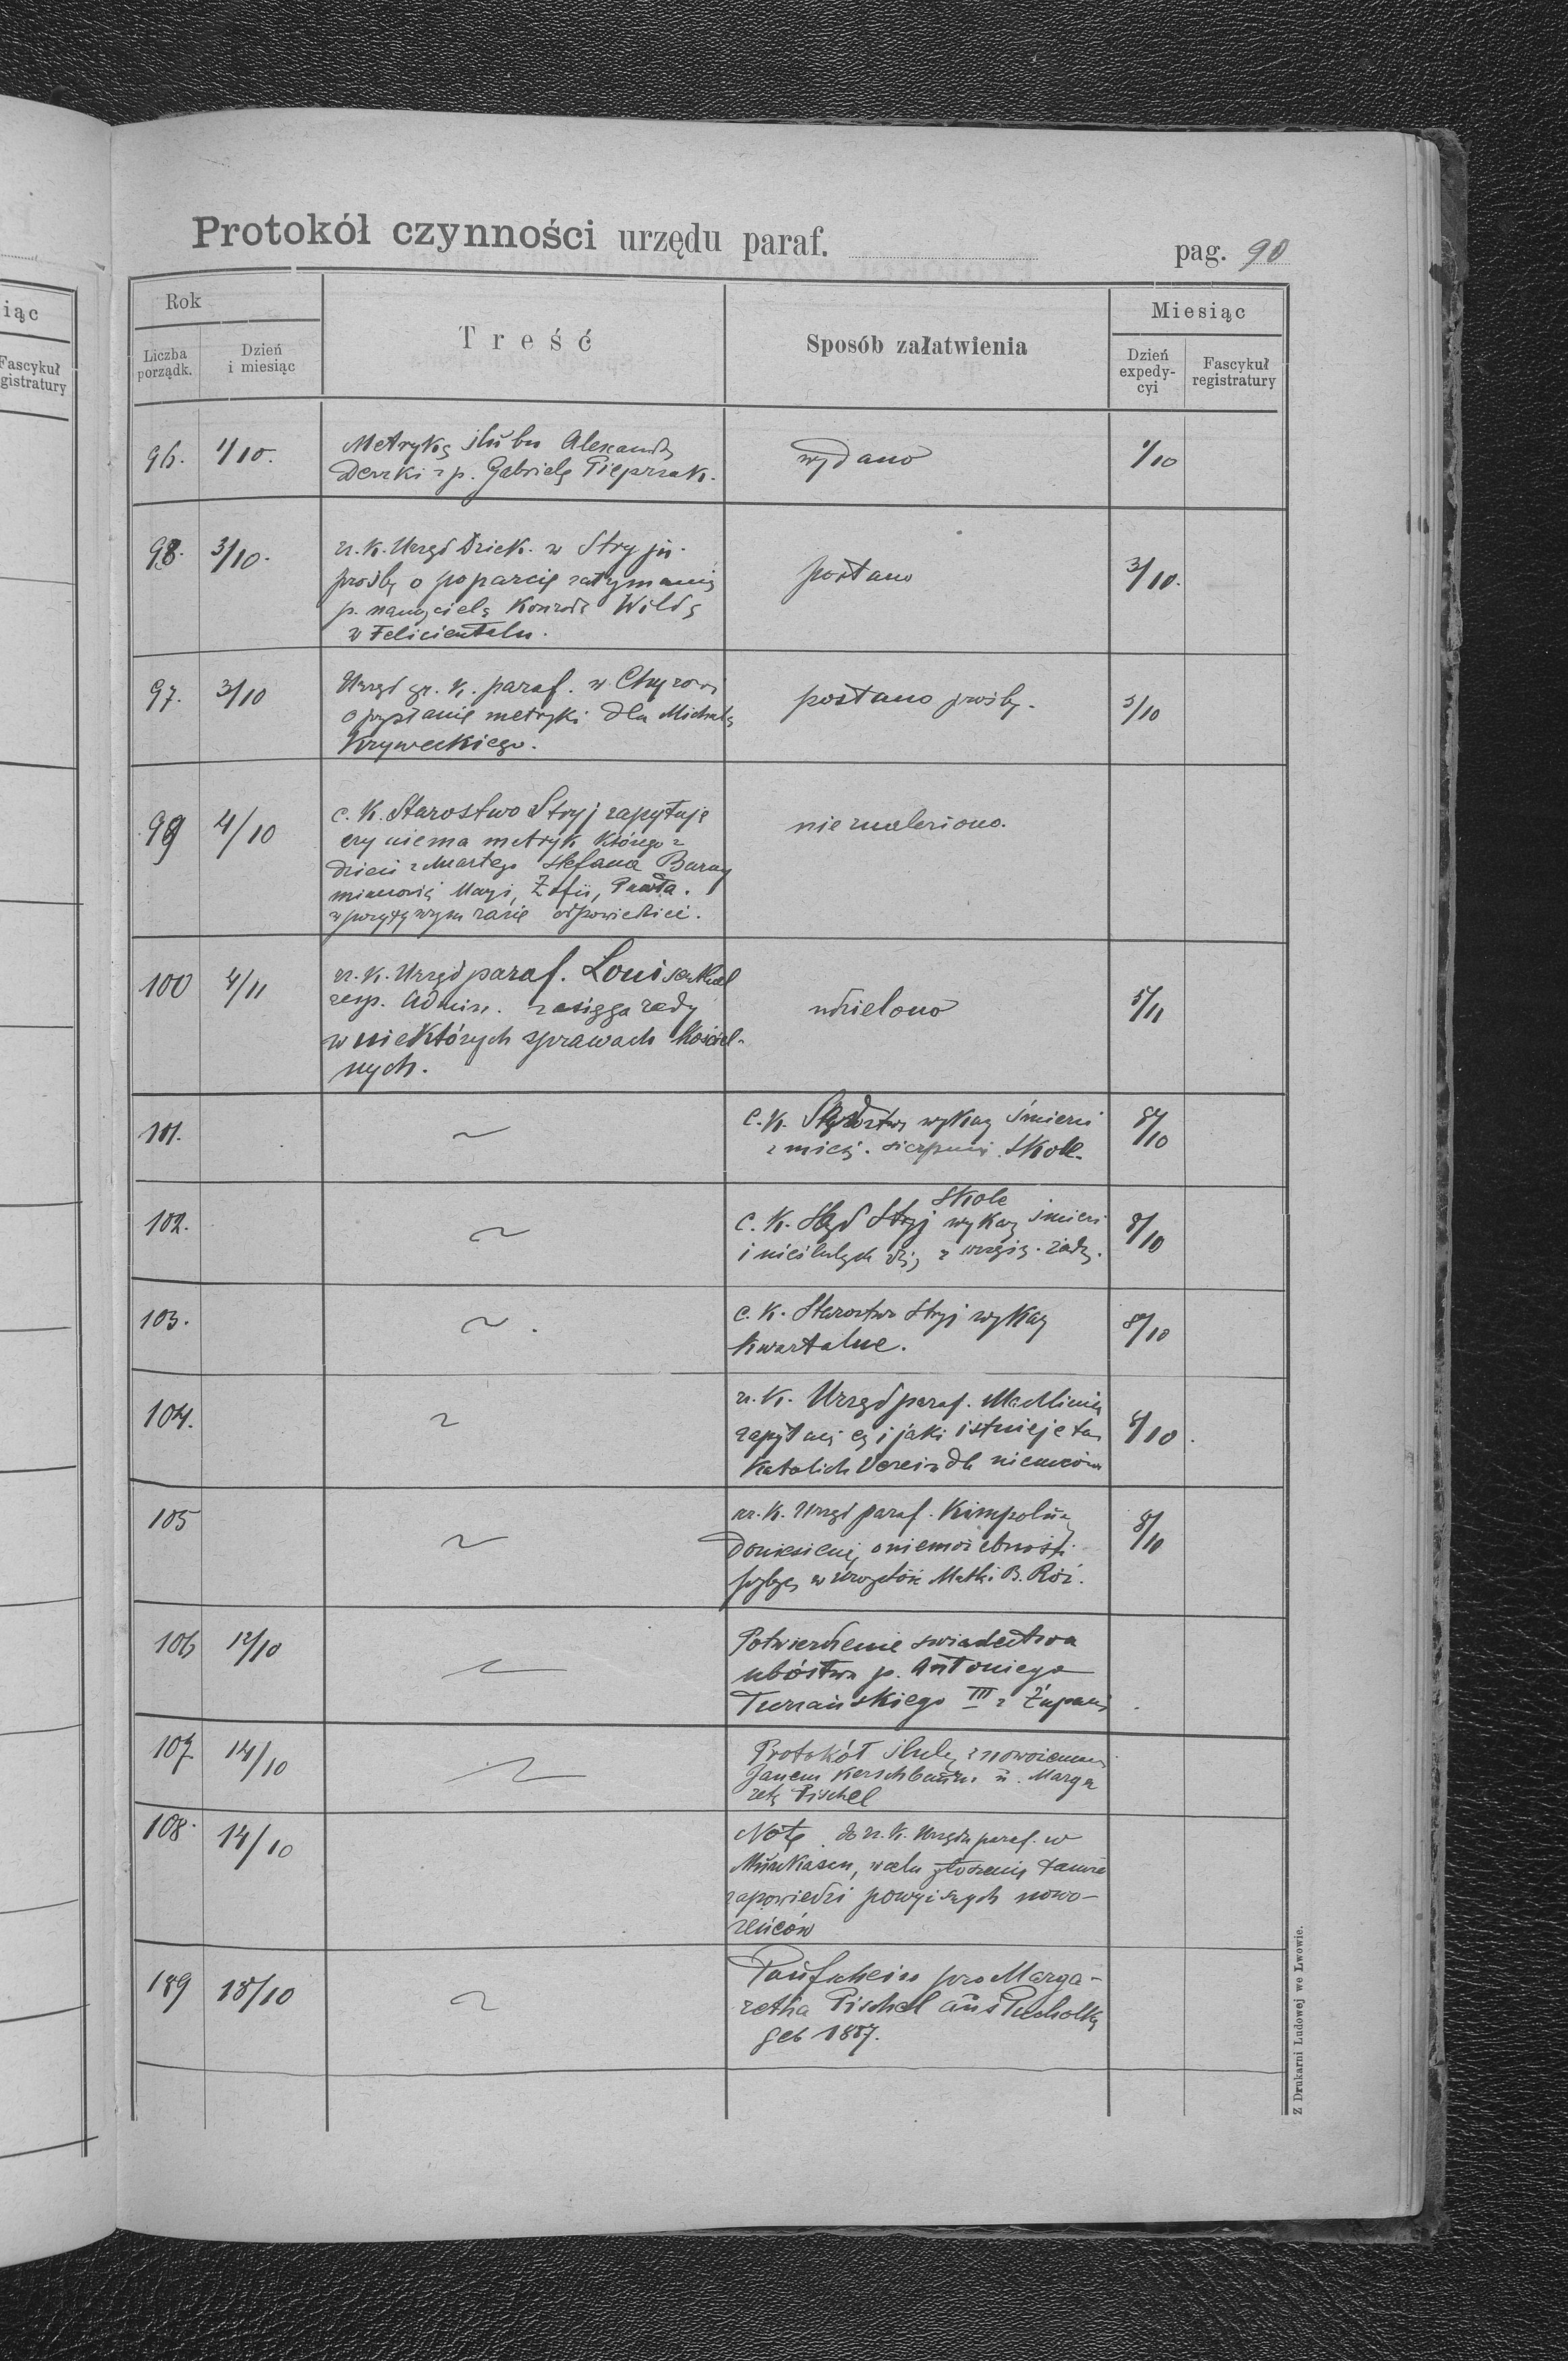 iąc
Fascykuł
gistratury
Protokół czynności urzędu paraf.
pag. 90
Rok
Liczba porządk.
Dzień i miesiąc
Treść
Sposób załatwienia
Miesiąc
Dzień expedy-cyi
Fascykuł registratury
96. 1/10. Metrykę ślubu Alexandra wydano 1/10
Derzki z p. Gabrielą Pieprzak.
98. 3/10. rz. k. Urząd Dziek. w Stryju. 3/10.
prośbę o poparcie zatrzymania
p. nauczyciela Konrada Wilda
w Felicientalu.
97. 3/10 Urząd gr. k. paraf. w Chyrowi posłano prośbę. 3/10
o przysłanie metryki dla Michała
Kryweckiego.
99 4/10 c. k. Starostwo Stryj zapytuje nie znaleziono.
czy niema metryk którego z
dzieci zmarłego Stefana Baran
mianowicie Maryi, Zofii, Pawła.
odpowiedzieć.
100 4/11 rz. k. Urząd paraf. Louisenthal udzielono 5/11
resp. Admin. zasięga rady
w niektórych sprawach kościel-
nych.
101. ~ c. k. wykaz śmierci 8/10
z mies. sierpnia Skole.
102. ~ Skole
c. k. Sąd Stryj wykaz śmierci 8/10
i nieślubnych
103. ~. c. k. Starostwo Stryj wykaz 8/10
kwartalne.
104. ~ rz. k. Urząd paraf. 8/10.
zapytanie czy i jaki istnieje tam
Katolich Verein dla niemców
105 ~ rz. k. Urząd paraf. Kimpolung 8/10
doniesienie o niemożebności
w uroczystość Matki B. Róż.
106 12/10 ~ Potwierdzenie świadectwa
ubóstwa p. Antoniego
Turzańskiego III z Żupani
107. 14/10 ~ Protokół ślubny z nowożeńcami
Janem Kerschbaum u. Marga
retą Pischel
108. 14/10 Notę do rz. k. Urzędu paraf. w
Munkascu, w celu głoszenia
zapowiedzi powyższych nowo-
żeńców
109 18/10 ~ Taufschein pro Marga-
retha Pischel aus
geb 1887.
Z Drukarni Ludowej we Lwowie.